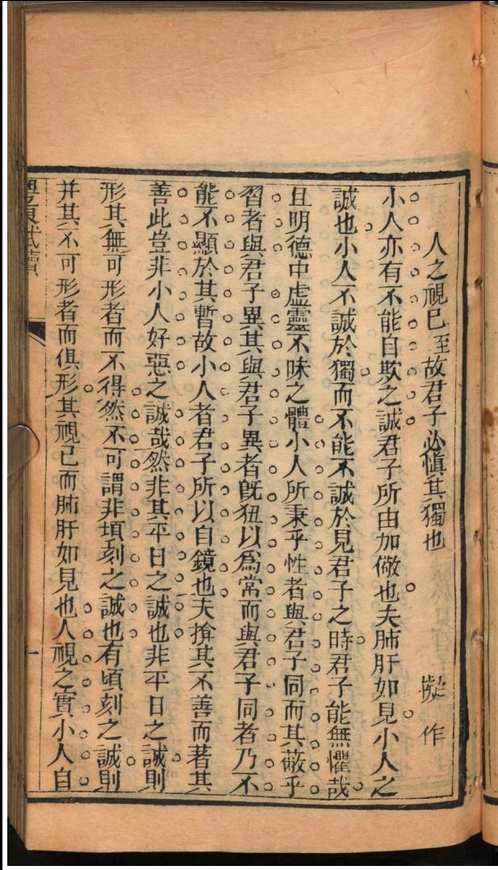 人之視己至故君子必慎其獨也　擬作
小人亦有不能自欺之誠君子所由加儆也夫肺肝如見小人之
誠也小人不誠於獨而不能不誠於見君子之時君子能無懼哉
且明德中虛靈不昧之體小人所秉乎性者與君子同而其蔽乎
習者與君子異其與君子異者旣狃以為常而與君子同者乃不
能不顯於其暫故小人者君子所以自鏡也夫揜其不善而著其
善此豈非小人好惡之誠哉然非其平日之誠也非平日之誠則
形其無可形者而不得然不可謂非頃刻之誠也有頃刻之誠則
并其不可形者而俱形其視己而肺肝如見也人視之實小人自
試牘
一